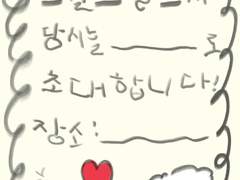 당시늘 ______ 로
초대합니다!
장소: